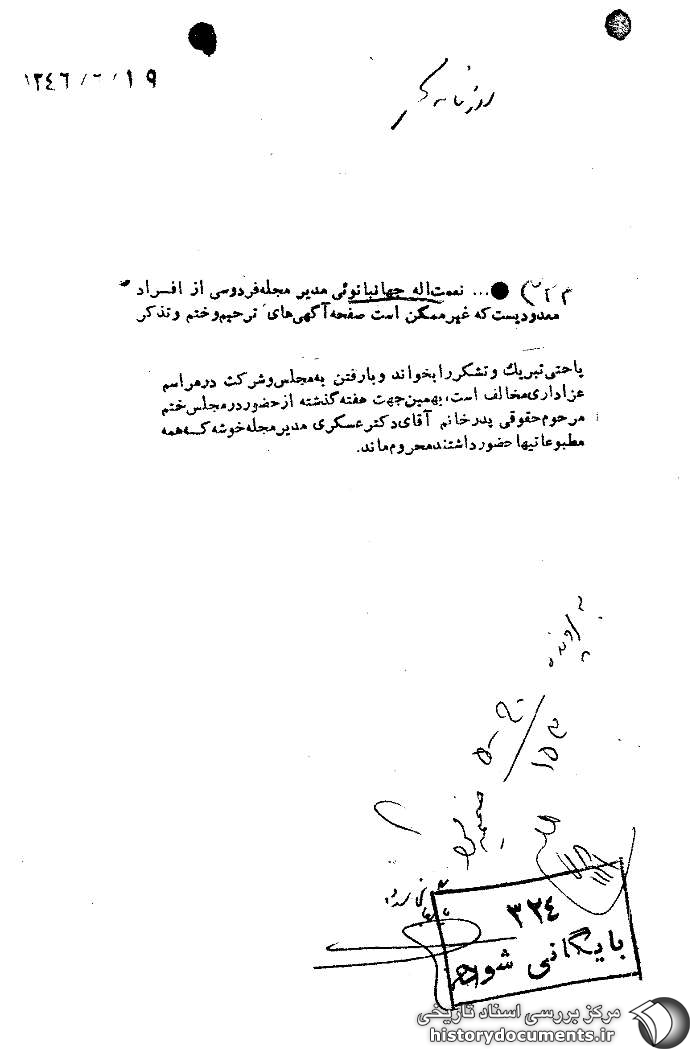 ۱۳۴۶/۲/۱۹
روزنامه سحر
... نعمت‌اله جهانبانوئی مدیر مجله فردوسی از افـــراد
معدودیست که غیرممکن است صفحه آگهی‌های ترحیم و ختم و تذکر
یا حتی تبریك و تشکر را بخواند و با رفتن به مجلس و شرکت در مراسم
عزاداری مخالف است، بهمین جهت هفته گذشته از حضور در مجلس ختم
مرحوم حقوقی پدر خانم آقای دکتر عسکری مدیر مجله خوشه کــه همه
مطبوعاتیها حضور داشتند محروم ماند.
به پرونده
ضمیمه
۳۲۴
بایگانی شود
مرکز بررسی اسناد تاریخی
historydocuments.ir